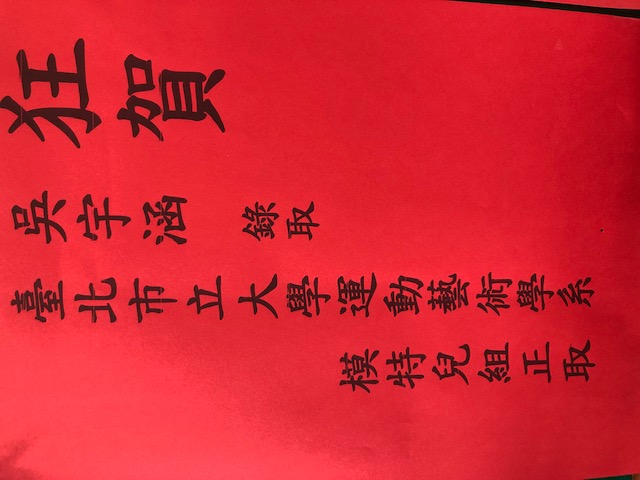 狂賀
吳宇涵 錄取
臺北市立大學運動藝術學系
模特兒組正取